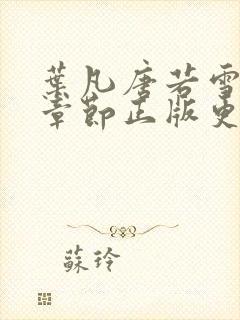 葉凡唐若雪
章節正版更
蘇玲